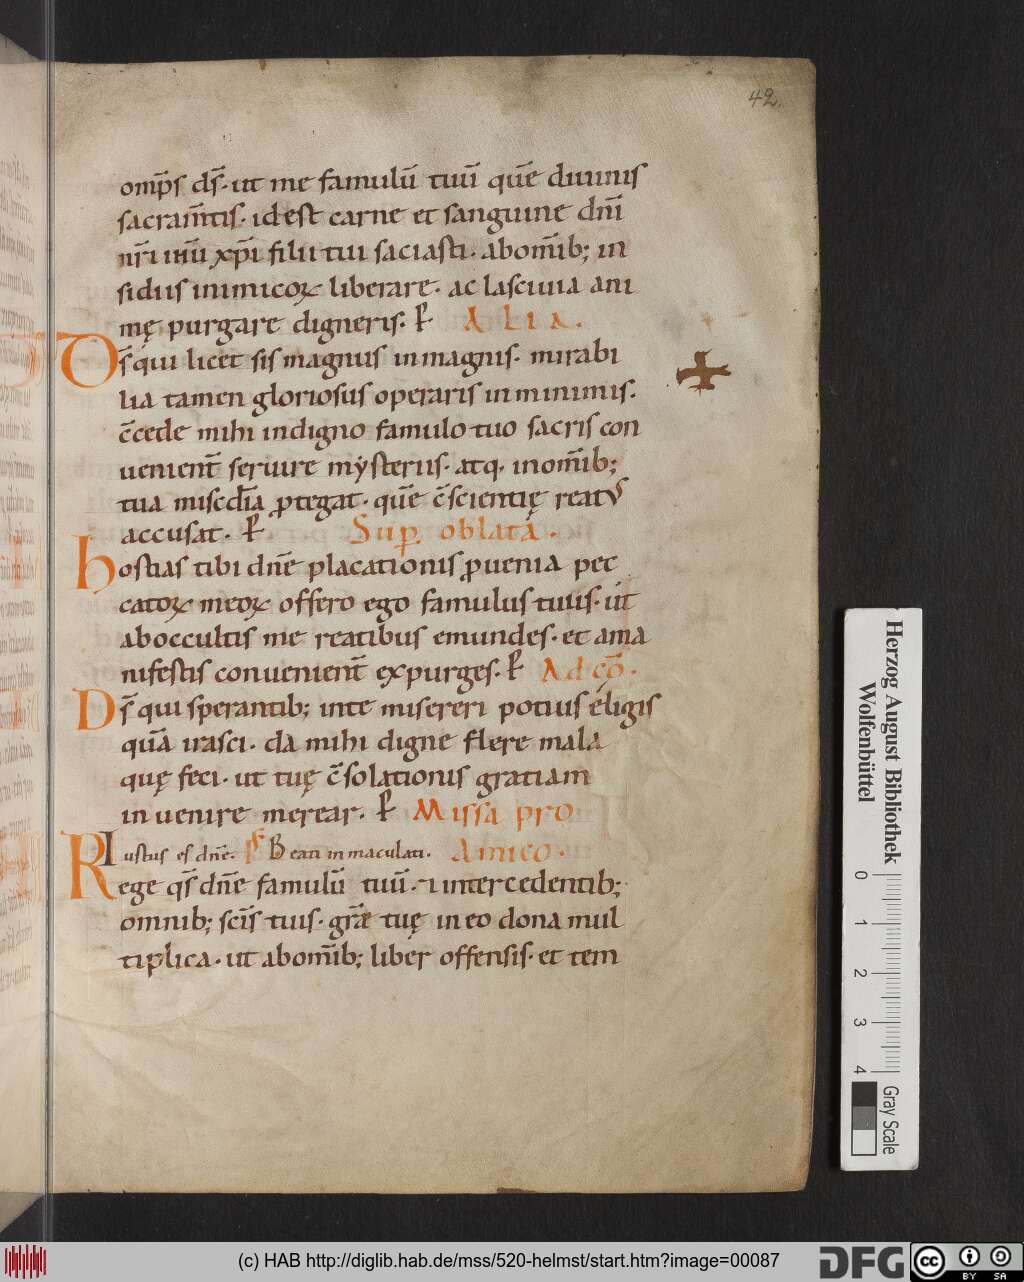 42.
omp̄s d̄s· ut me famulū tuū quē diuinis
sacram̄tis· id est carne et sanguine dn̄i
nr̄i ihū xp̄i filii tui saciasti· ab om̄ib; in
sidiis inimicoꝝ liberare· ac lasciuia ani
mę purgare digneris· ꝑ ALIA.
Ds̄ qui licet sis magnus in magnis· mirabi
lia tamen gloriosus operaris in minimis·
c̄cede mihi indigno famulo tuo sacris con
uenient̄ seruire mysteriis· atq· in om̄ib;
tua misc̄dia ꝓtegat· quē c̄scientię reatus
accusat· ꝑ Sup oblatā·
hostias tibi dn̄e placationis ꝓ uenia pec
catoꝝ meoꝝ offero ego famulus tuus· ut
ab occultis me reatibus emundes· et a ma
nifestis conuenient̄ expurges· ꝑ Ad cō·
Ds̄ qui sperantib; in te misereri potius eligis
quā irasci· da mihi digne flere mala
quę feci· ut tuę c̄solationis gratiam
inuenire merear· ꝑ Missa pro
Iustus es dn̄e· ps̄ Beati inmaculati· Amico·
Rege qs̄ dn̄e famulū tuū· ⁊ intercedentib;
omnib; sc̄is tuis· gr̄ae tuę in eo dona mul
tiplica· ut ab om̄ib; liber offensis· et tem
Herzog August Bibliothek
Wolfenbüttel
0 1 2 3 4
Gray Scale
(c) HAB http://diglib.hab.de/mss/520-helmst/start.htm?image=00087
DFG
cc BY SA